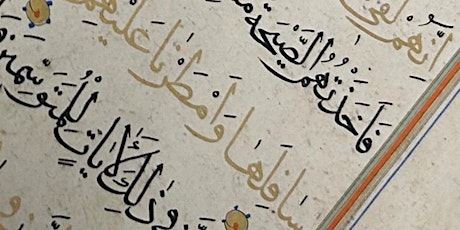 اِنَّهُمْ لَفِي
فَاَخَذَتْهُمُ الصَّيْحَةُ
سَافِلَهَا وَاَمْطَرْنَا عَلَيْهِمْ
فِي ذٰلِكَ لَاٰيَاتٍ لِلْمُتَوَسِّمِينَ